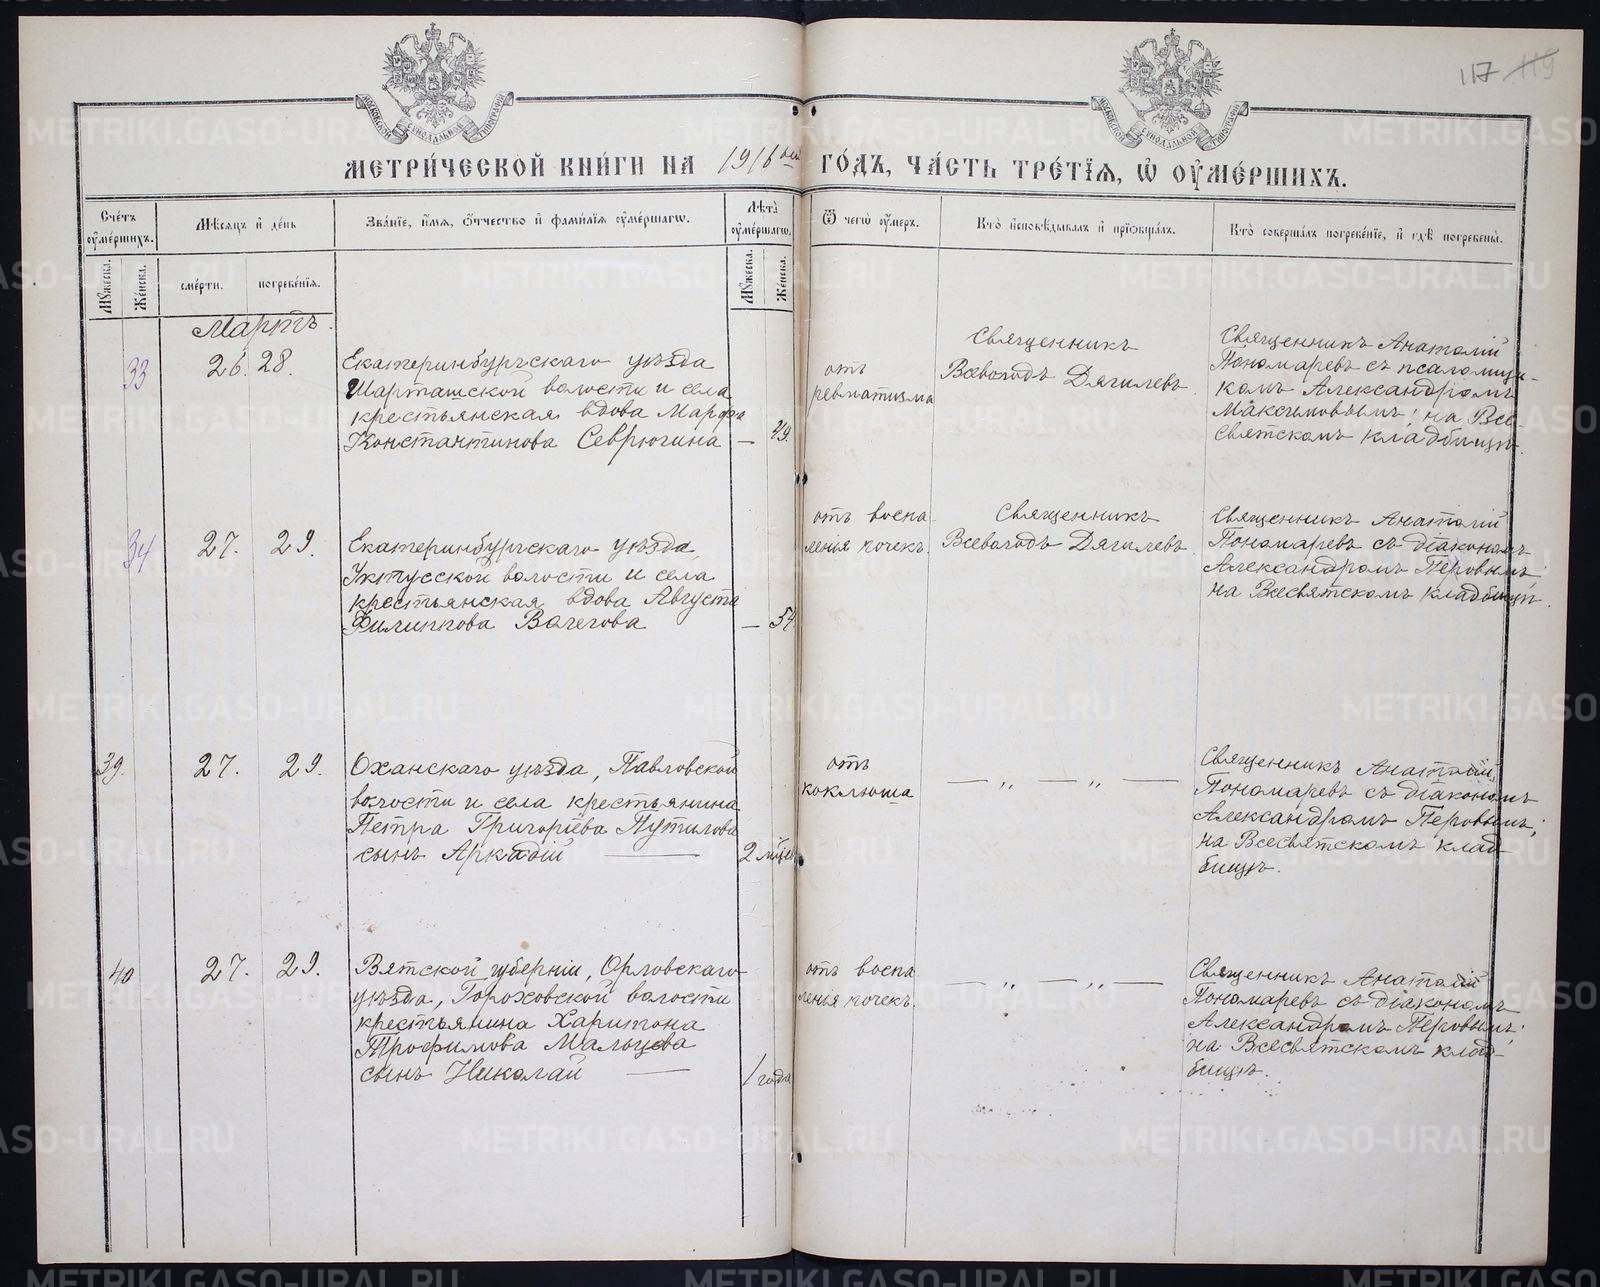 117 119
МОСКОВСКОЙ СѴНОДАЛЬНОЙ ТИПОГРАФІИ
МОСКОВСКОЙ СѴНОДАЛЬНОЙ ТИПОГРАФІИ
МЕТРИ́ЧЕСКОЙ КНИ́ГИ НА 1916 ой ГО́ДЪ, ЧА́СТЬ ТРЕ́ТІѦ, Ѡ ОУМЕ́РШИХЪ.
Сче́тъ оумершихъ.
Мѣсяцъ и де́нь
Зва́ніе, и́мя, о́тчество и фами́лія оуме́ршагѡ.
Лѣта̀ оуме́ршагѡ.
Ѿ чегѡ̀ оу́меръ.
Кто̀ исповѣ́дывалъ и пріѡбща́лъ.
Кто̀ соверша́лъ погребе́ніе, и гдѣ̀ погребены̀.
Мꙋжеска.
Же́нска.
сме́рти.
погребе́нія.
Мꙋжеска.
Же́нска.
Мартъ.
33
26. 28.
Екатеринбургскаго уѣзда
Шарташской волости и села
крестьянская вдова Марфа
Константинова Севрюгина — 49.
отъ
ревматизма
Священникъ
Всеволодъ Дягилевъ.
Священникъ Анатолій
Пономаревъ съ псаломщи-
комъ Александромъ
Максимовымъ; на Все-
святскомъ кладбищѣ.
34
27. 29.
Екатеринбургскаго уѣзда,
Уктусской волости и села
крестьянская вдова Августа
Филиппова Вачегова — 54
отъ воспа-
ленія почекъ.
Священникъ
Всеволодъ Дягилевъ.
Священникъ Анатолій
Пономаревъ съ діакономъ
Александромъ Перовымъ;
на Всесвятскомъ кладбищѣ.
39.
27. 29.
Оханскаго уѣзда, Павловской
волости и села крестьянина
Петра Григоріева Путилова
сынъ Аркадій — 2 мѣс.
отъ
коклюша
— „ — „ —
Священникъ Анатолій
Пономаревъ съ діакономъ
Александромъ Перовымъ;
на Всесвятскомъ клад-
бищѣ.
40
27. 29.
Вятской губерніи, Орловскаго
уѣзда, Гороховской волости
крестьянина Харитона
Трофимова Мальцева
сынъ Николай — 1 года
отъ воспа
ленія почекъ.
— „ — „ —
Священникъ Анатолій
Пономаревъ съ діакономъ
Александромъ Перовымъ;
на Всесвятскомъ клад-
бищѣ.
METRIKI.GASO-URAL.RU